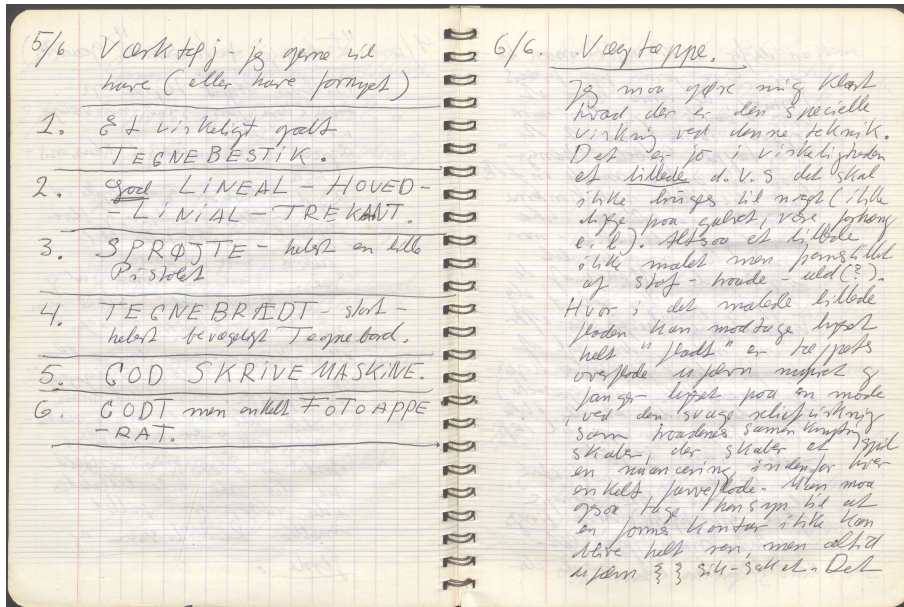 5/6 Værktøj - jeg gerne vil
have (eller have fornyet)
1. Et virkeligt godt
TEGNEBESTIK.
2. god LINEAL - HOVED-
- LINIAL - TREKANT.
3. SPRØJTE - helst en lille
Pistolet
4. TEGNEBRÆDT - stort -
helst bevægeligt Tegnebord.
5. GOD SKRIVEMASKINE.
6. GODT men enkelt FOTOAPPE
-RAT.
6/6. Vægtæppe.
Jeg maa gjøre mig klart
hvad der er den specielle
virkning ved denne teknik.
Det er jo i virkeligheden
et billede d.v.s det skal
ikke bruges til noget (ikke
ligge paa gulvet, være forhæng
e.l.). Altsaa et billede
ikke malet men fremstillet
af stof - traade - uld (?).
Hvor i det malede billede
fladen kan modtage lyset
helt "fladt" er tæppets
overflade ujævn nupret og
fanger lyset paa en maade
ved den svage reliefvirkning
som traadenes sammenknytning
skaber, der skaber et spil
en nuancering indenfor hver
enkelt farveflade. Man maa
ogsaa tage hensyn til at
en forms kontur ikke kan
blive helt ren, men altid
ujævn sik-sakket. Det